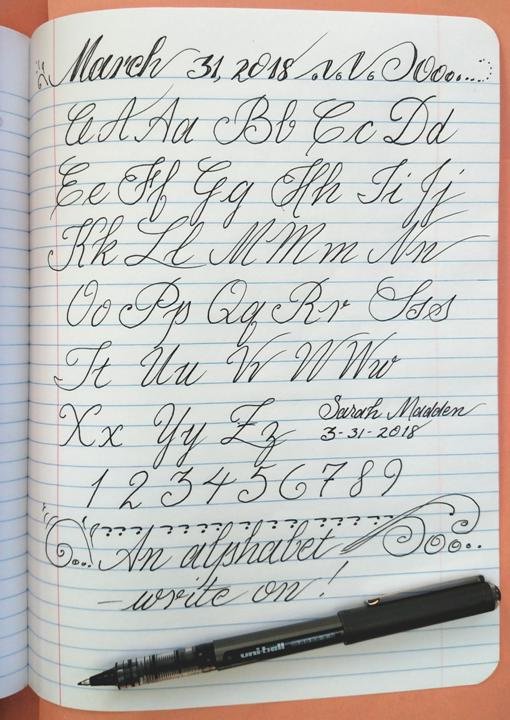 March 31, 2018
A A Aa Bb Cc Dd
Ee Ff Gg Hh Ii Jj
Kk Ll M M m Nn
Oo Pp Qq Rr Sss
Tt Uu Vv W Ww
Xx Yy Zz
Sarah Madden
3-31-2018
1 2 3 4 5 6 7 8 9
? ? ? ? ? ? ? ? ? ? ? ? ? ?
An alphabet
- write on!
uni-ball